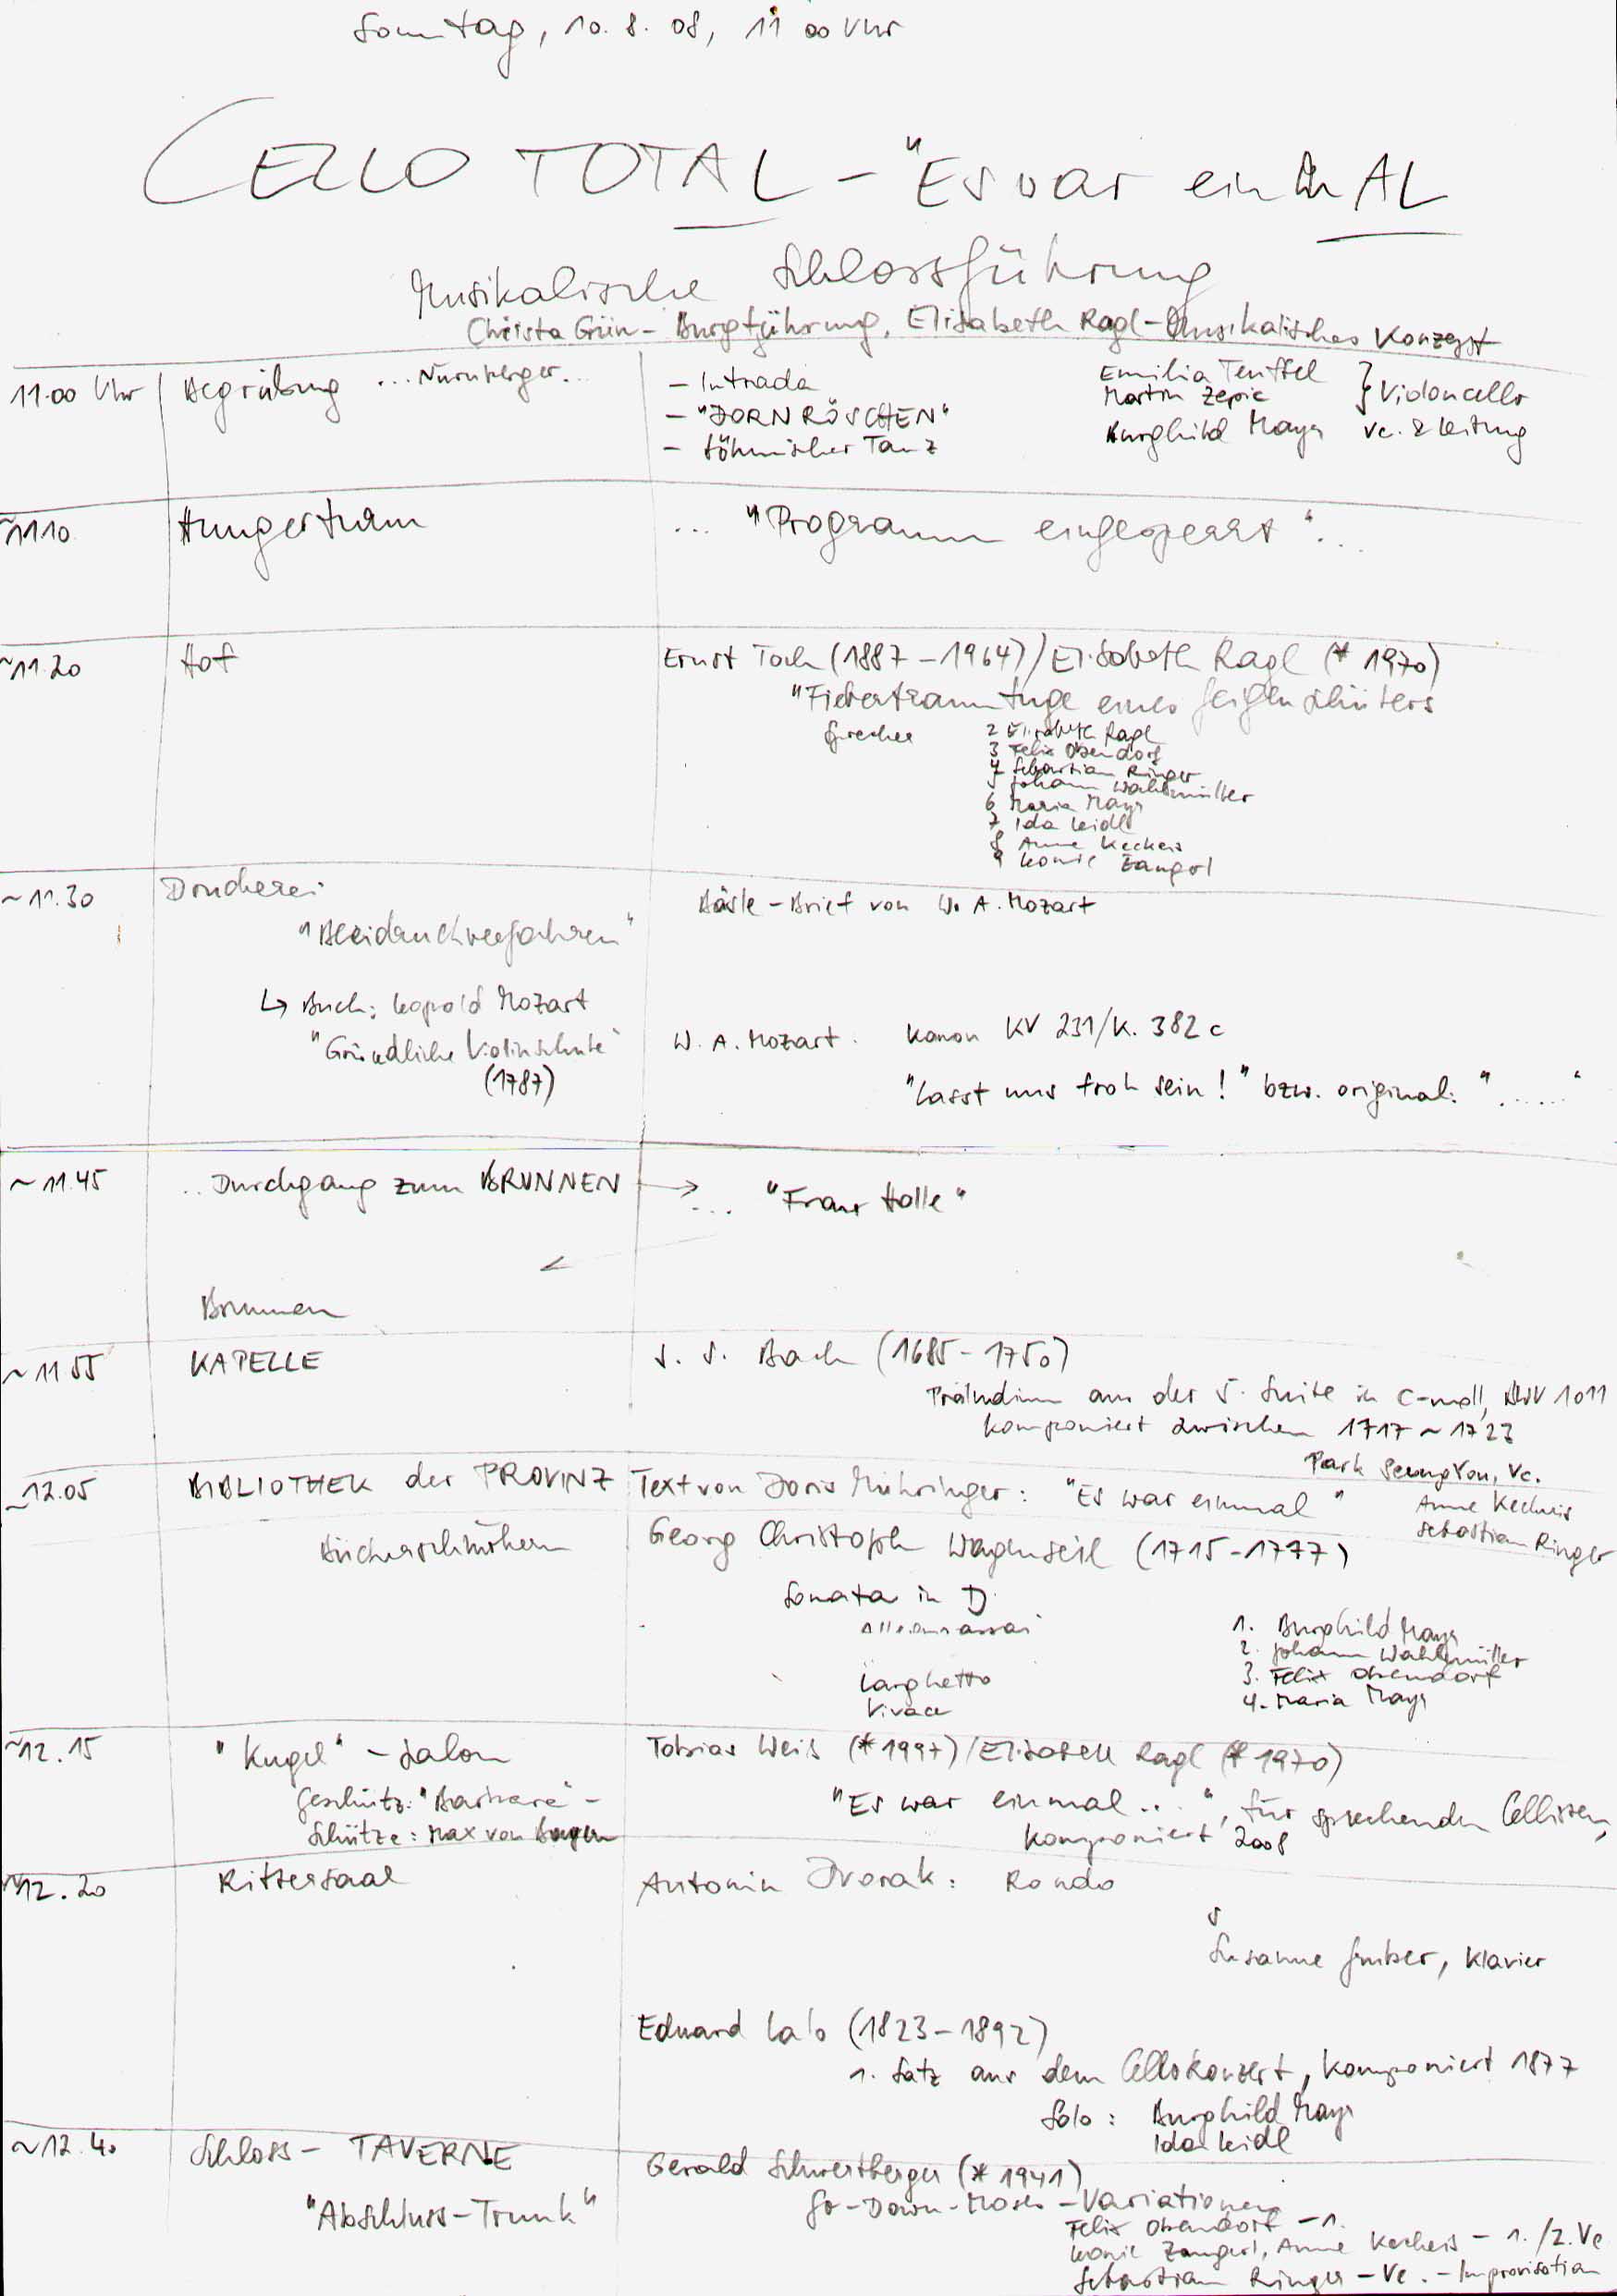 Sonntag, 10. 8. 08, 11 00 Uhr
CELLO TOTAL – "Es war einmAL
Musikalische Schlossführung
Christa Grün – Burgführung, Elisabeth Ragl – Musikalisches Konzept
11.00 Uhr Begrüßung ... Nürnberger...
– Intrada
– "DORNRÖSCHEN"
– Böhmischer Tanz
Emilia Teuffel
Martin Zepic } Violoncello
Burghild Mayr Vc. & Leitung
~11.10 Hungerturm ... "Programm eingesperrt"...
~11.20 Hof Ernst Toch (1887 – 1964) / Elisabeth Ragl (* 1970)
"Fiebertraumfuge eines Geigenschülers
Sprecher 2 Elisabeth Ragl
3 Felix Obendorf
4 Sebastian Ringer
5 Johann Wahlmüller
6 Maria Mayr
7 Ida Leidl
8 Anne Keckeis
9 Leonie Zangerl
~ 11.30 Druckerei Bäsle – Brief von W. A. Mozart
"Bleidruckverfahren"
↳ Buch: Leopold Mozart
"Gründliche Violinschule"
(1787)
W. A. Mozart. Kanon KV 231/K. 382 c
"Lasst uns froh sein!" bzw. original: "......"
~ 11.45 .. Durchgang zum BRUNNEN → ... "Frau Holle"
Brunnen
~ 11 55 KAPELLE J. S. Bach (1685 – 1750)
Präludium aus der 5. Suite in c-moll, BWV 1011
komponiert zwischen 1717 ~ 1723
Park SeungYon, Vc.
~12.05 BIBLIOTHEK der PROVINZ Text von Doris Mühringer: "Es war einmal"
Anne Keckeis
Sebastian Ringer
Bücherschmökern Georg Christoph Wagenseil (1715 – 1777)
Sonata in D
Allegro assai
Larghetto
Vivace
1. Burghild Mayr
2. Johann Wahlmüller
3. Felix Obendorf
4. Maria Mayr
~12.15 "Kugel" – Salon Tobias Weiß (* 1997) / Elisabeth Ragl (* 1970)
Geschütz: "Barbara" –
Schütze: Max von
"Es war einmal...", für sprechenden Cellisten,
komponiert 2008
~12.20 Rittersaal Antonin Dvorak: Rondo
Susanne Gruber, Klavier
Eduard Lalo (1823 – 1892)
1. Satz aus dem Cellokonzert, komponiert 1877
Solo: Burghild Mayr
Ida Leidl
~12.40 Schloss – TAVERNE Gerald Schwertberger (* 1941)
"Abschluss – Trunk"
Go – Down – Moses – Variationen
Felix Obendorf – 1.
Leonie Zangerl, Anne Keckeis – 1. / 2. Vc
Sebastian Ringer – Vc. – Improvisation